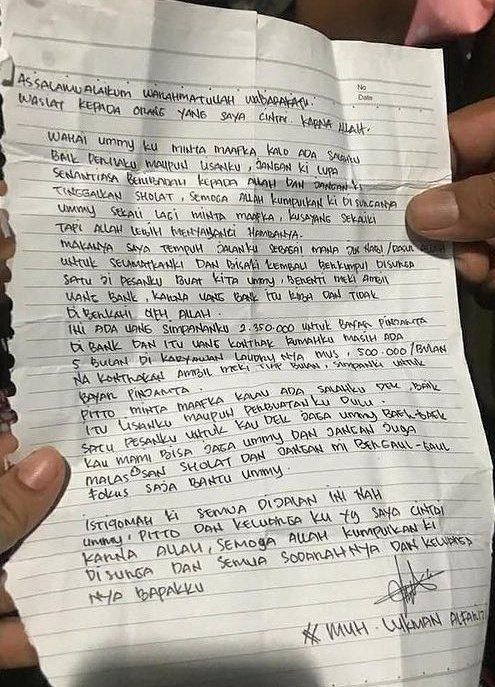 No
Date
ASSALAMUALAIKUM WARAHMATULLAH WABARAKATU.
WASIAT KEPADA ORANG YANG SAYA CINTAI KARNA ALLAH.
WAHAI UMMY KU MINTA MAAFKA KALO ADA SALAHKU
BAIK PERILAKU MAUPUN LISANKU, JANGAN KI LUPA
SENANTIASA BERIBADAH KEPADA ALLAH DAN JANGAN KI
TINGGALKAN SHOLAT, SEMOGA ALLAH KUMPULKAN KI DI SURGANYA
UMMY SEKALI LAGI MINTA MAAFKA, KUSAYANG SEKALIKI
TAPI ALLAH LEBIH MENYAYANGI HAMBANYA.
MAKANYA SAYA TEMPUH JALANKU SEBAGAI MANA JLN NABI/RASUL ALLAH
UNTUK SELAMATKANKI DAN BISAKI KEMBALI BERKUMPUL DISURGA
SATU JI PESANKU BUAT KITA UMMY, BERENTI MEKI AMBIL
UANG BANK, KARNA UANG BANK ITU RIBA DAN TIDAK
DI BERKAHI OLEH ALLAH.
INI ADA UANG SIMPANANKU 2.350.000 UNTUK BAYAR PINJAMTA
DI BANK DAN ITU UANG KONTRAK RUMAHKU MASIH ADA
5 BULAN DI KARYAWAN LAUDRY NYA MUS, 500.000/BULAN
NA KONTRAKAN AMBIL MEKI TIAP BULAN, SIMPANKI UNTUK
BAYAR PINJAMTA.
PITTO MINTA MAAFKA KALAU ADA SALAHKU DEK, BAIK
ITU LISANKU MAUPUN PERBUATANKU DULU.
SATU PESANKU UNTUK KAU DEK JAGA UMMY BAEK-BAEK
KAU MAMI BISA JAGA UMMY DAN JANGAN JUGA
MALAS SAN SHOLAT DAN JANGAN MI BERGAUL-GAUL
FOKUS SAJA BANTU UMMY.
ISTIQOMAH KI SEMUA DIJALAN INI NAH
UMMY, PITTO DAN KELUARGA KU YG SAYA CINTAI
KARNA ALLAH, SEMOGA ALLAH KUMPULKAN KI
DI SURGA DAN SEMUA SODARAHNYA DAN KELUARGA
NYA BAPAKKU
MUH. LUKMAN